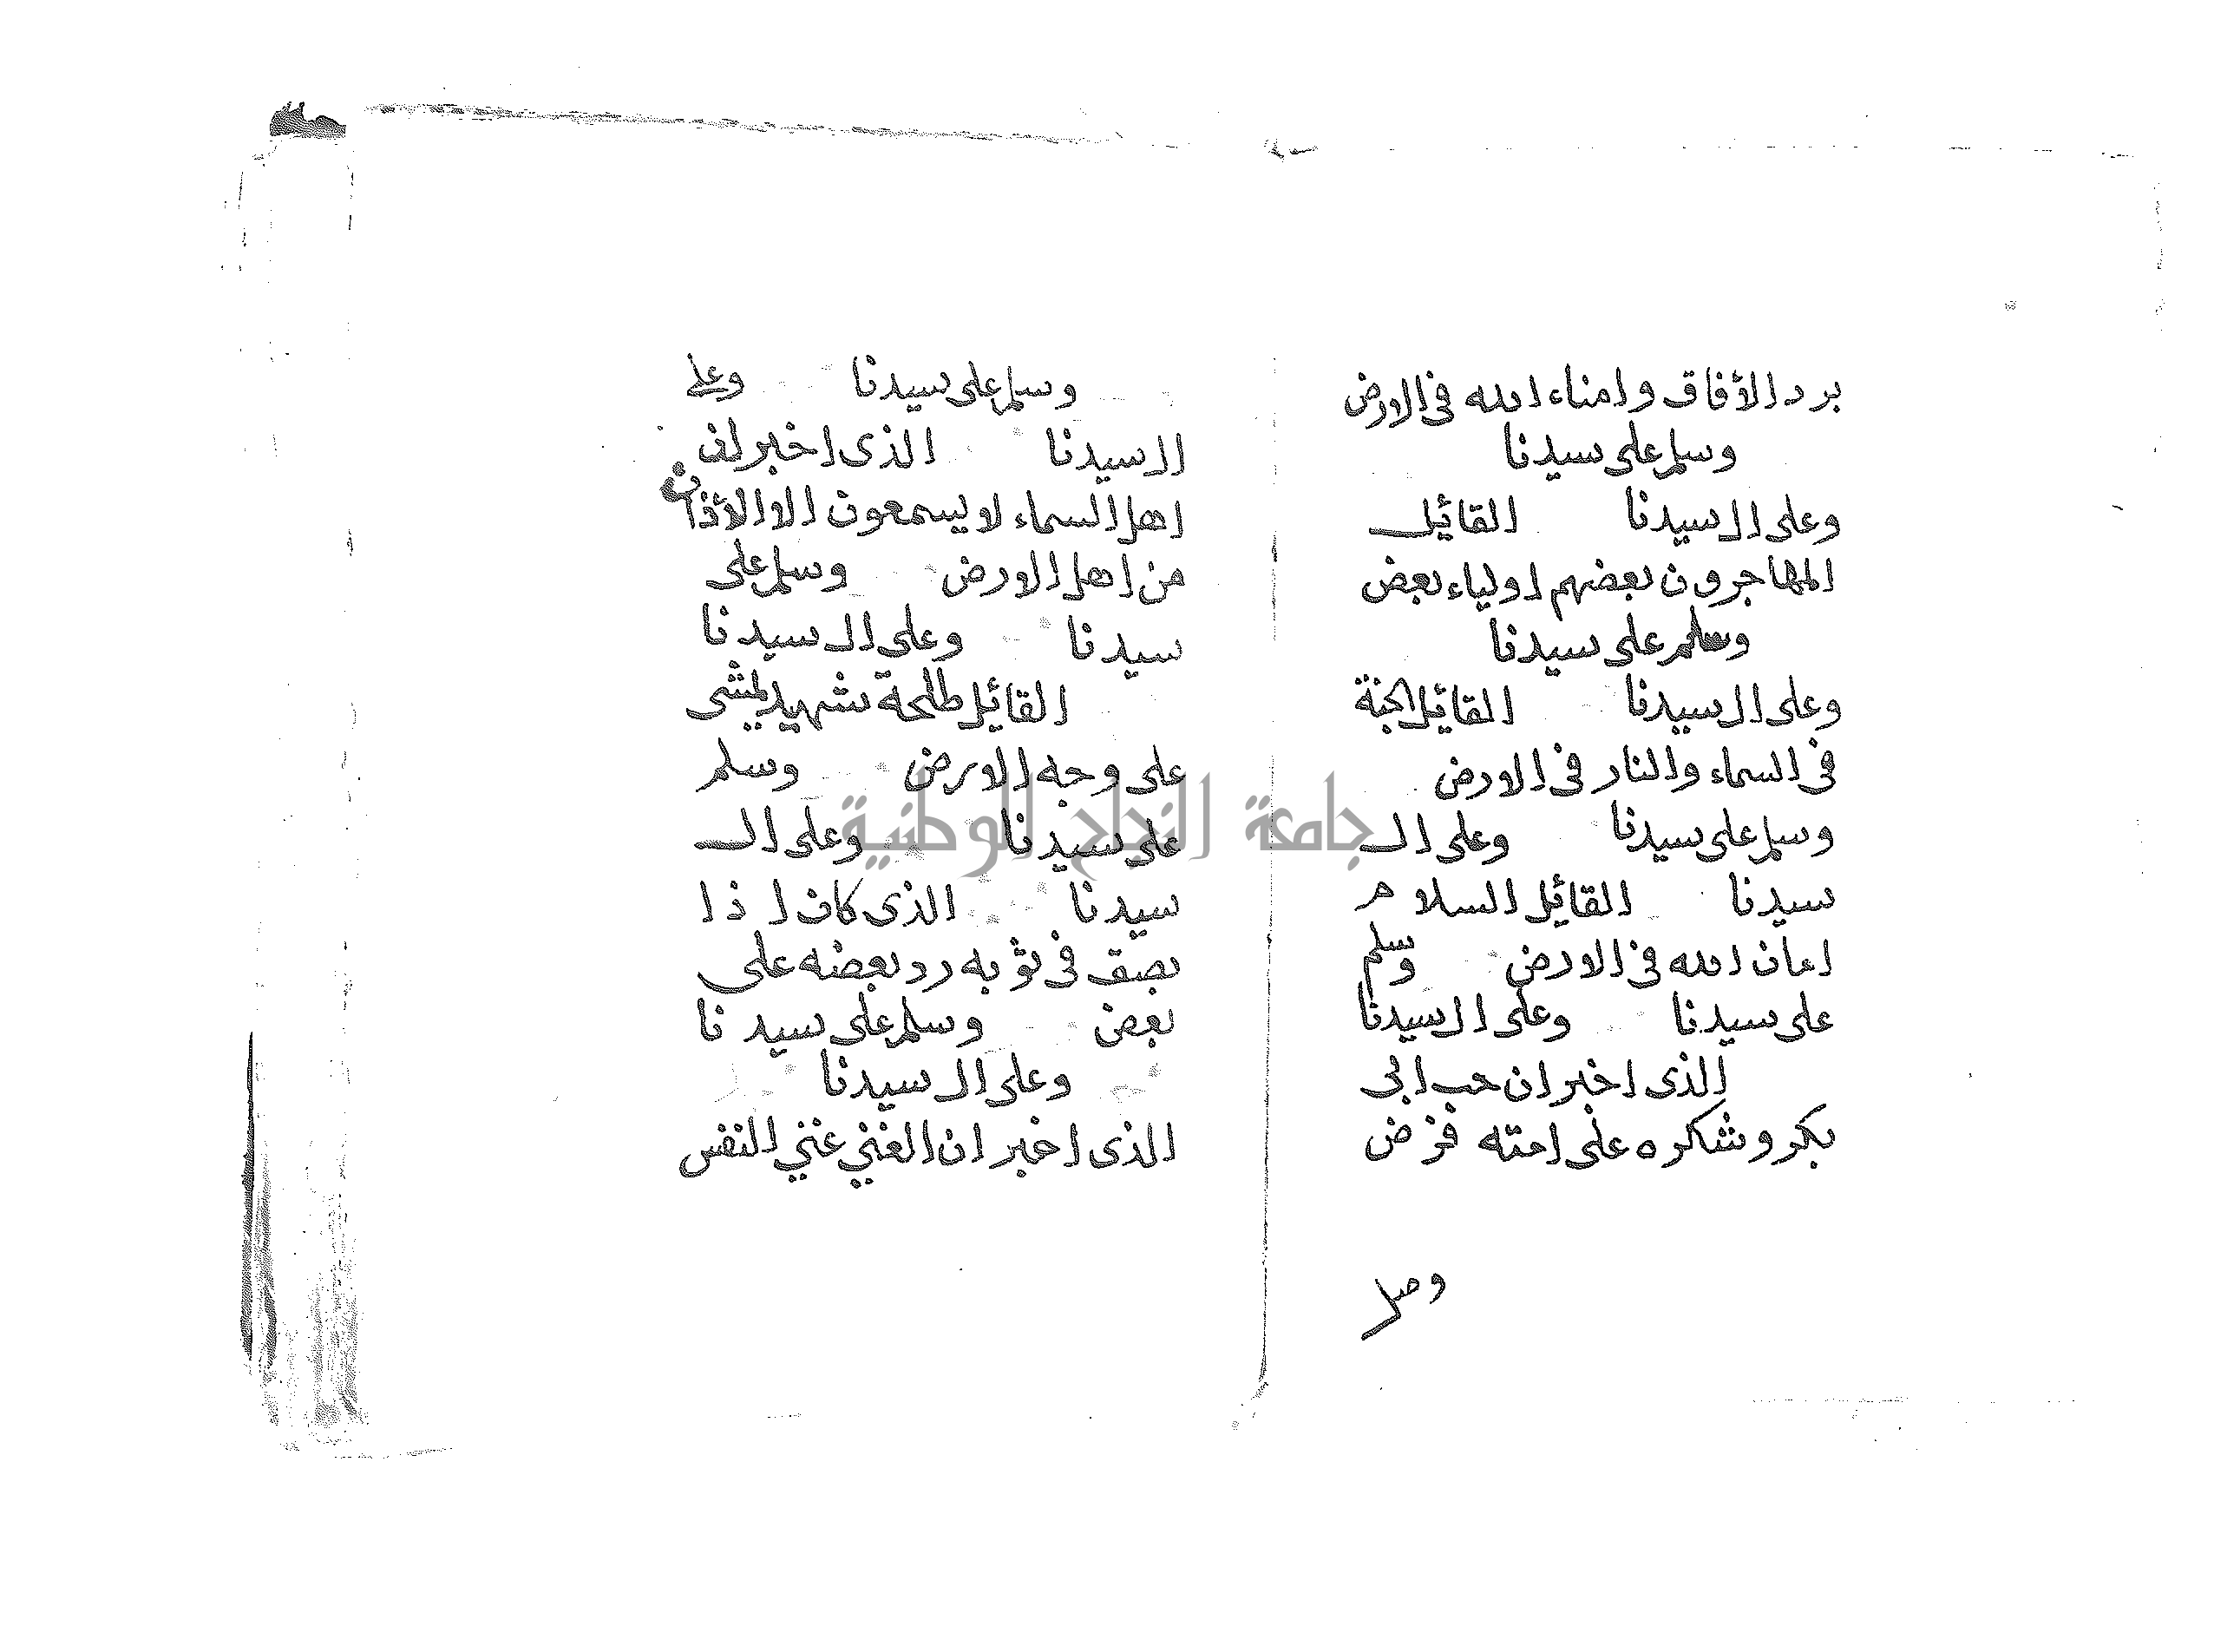 برد الأفاق وامناء الله فى الارض
وسلم على سيدنا
وعلى ال سيدنا القائل
المهاجرون بعضهم اولياء بعض
وسلم على سيدنا
وعلى ال سيدنا القائل الجنة
فى السماء والنار فى الارض
وسلم على سيدنا وعلى ال
سيدنا القائل السلام
امان الله فى الارض وسلم
على سيدنا وعلى ال سيدنا
الذى اخبر ان حب ابى
بكر وشكره على امته فرض
وصل
وسلم على سيدنا وعلى
ال سيدنا الذى اخبر ان
اهل السماء لا يسمعون الا الأذان
من اهل الارض وسلم على
سيدنا وعلى ال سيدنا
القائل طلحة شهيد يمشى
على وجه الارض وسلم
على سيدنا وعلى ال
سيدنا الذى كان اذا
بصق فى ثوبه رد بعضه على
بعض وسلم على سيدنا
وعلى ال سيدنا
الذى اخبر ان الغني غني النفس
جامعة النجاح الوطنية